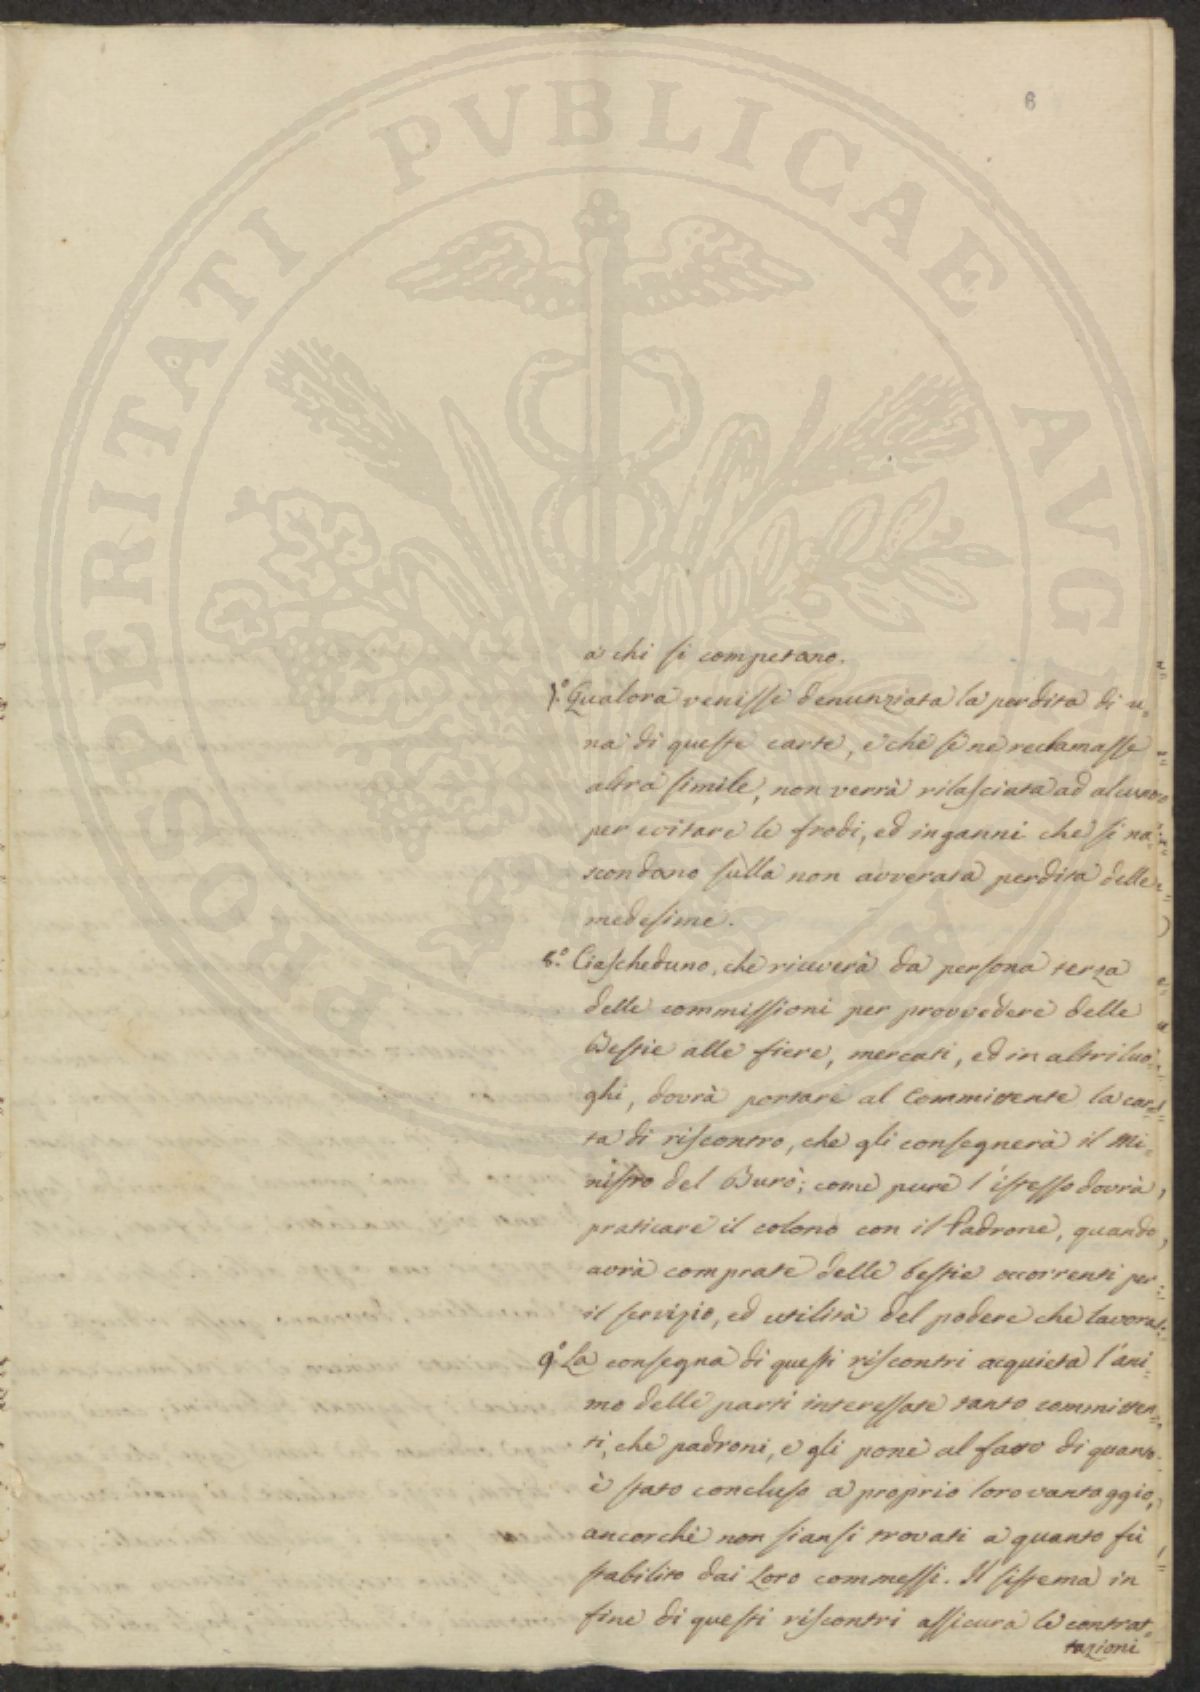 PROSPERITATI PVBLICAE AVGENDAE
6
a chi si competano.
7.° Qualora venisse denunziata la perdita di u=
na di queste carte, e che se ne reclamasse
altra simile, non verrà rilasciata ad alcuno
per evitare le frodi, ed inganni che si na=
scondano sulla non avverata perdita delle
medesime.
8.° Ciascheduno, che riceverà da persona terza
delle commissioni per provvedere delle
Bestie alle fiere, mercati, ed in altri luo=
ghi, dovrà portare al Committente la car=
ta di riscontro, che gli consegnerà il Mi=
nistro del Burò; come pure l'istesso dovrà
praticare il colono con il Padrone, quando
avrà comprate delle bestie occorrenti per
il servizio, ed utilità del podere che lavora.
9.° La consegna di questi riscontri acquieta l'ani=
mo delle parti interessate tanto committen=
ti, che padroni, e gli pone al fatto di quanto
è stato concluso a proprio loro vantaggio,
ancorchè non siansi trovati a quanto fù
stabilito dai Loro commessi. Il sistema in
fine di questi riscontri assicura le contrat=
tazioni